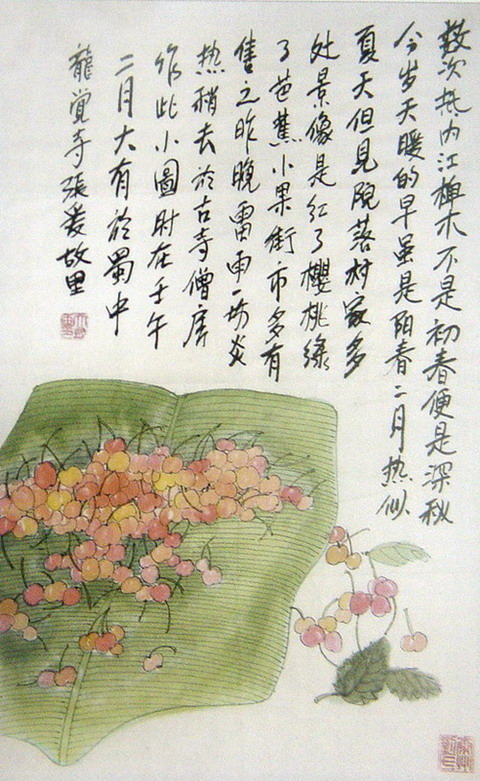 数次抵内江樟木不是初春便是深秋
今岁天暖的早虽是阳春二月热似
夏天但见院落村家多
处景像是红了樱桃绿
了芭蕉小果街市多有
售之昨晚雷雨一场炎
热稍去於古寺僧房
作此小圖时在壬午
二月大有於蜀中
龍覚寺張爰故里